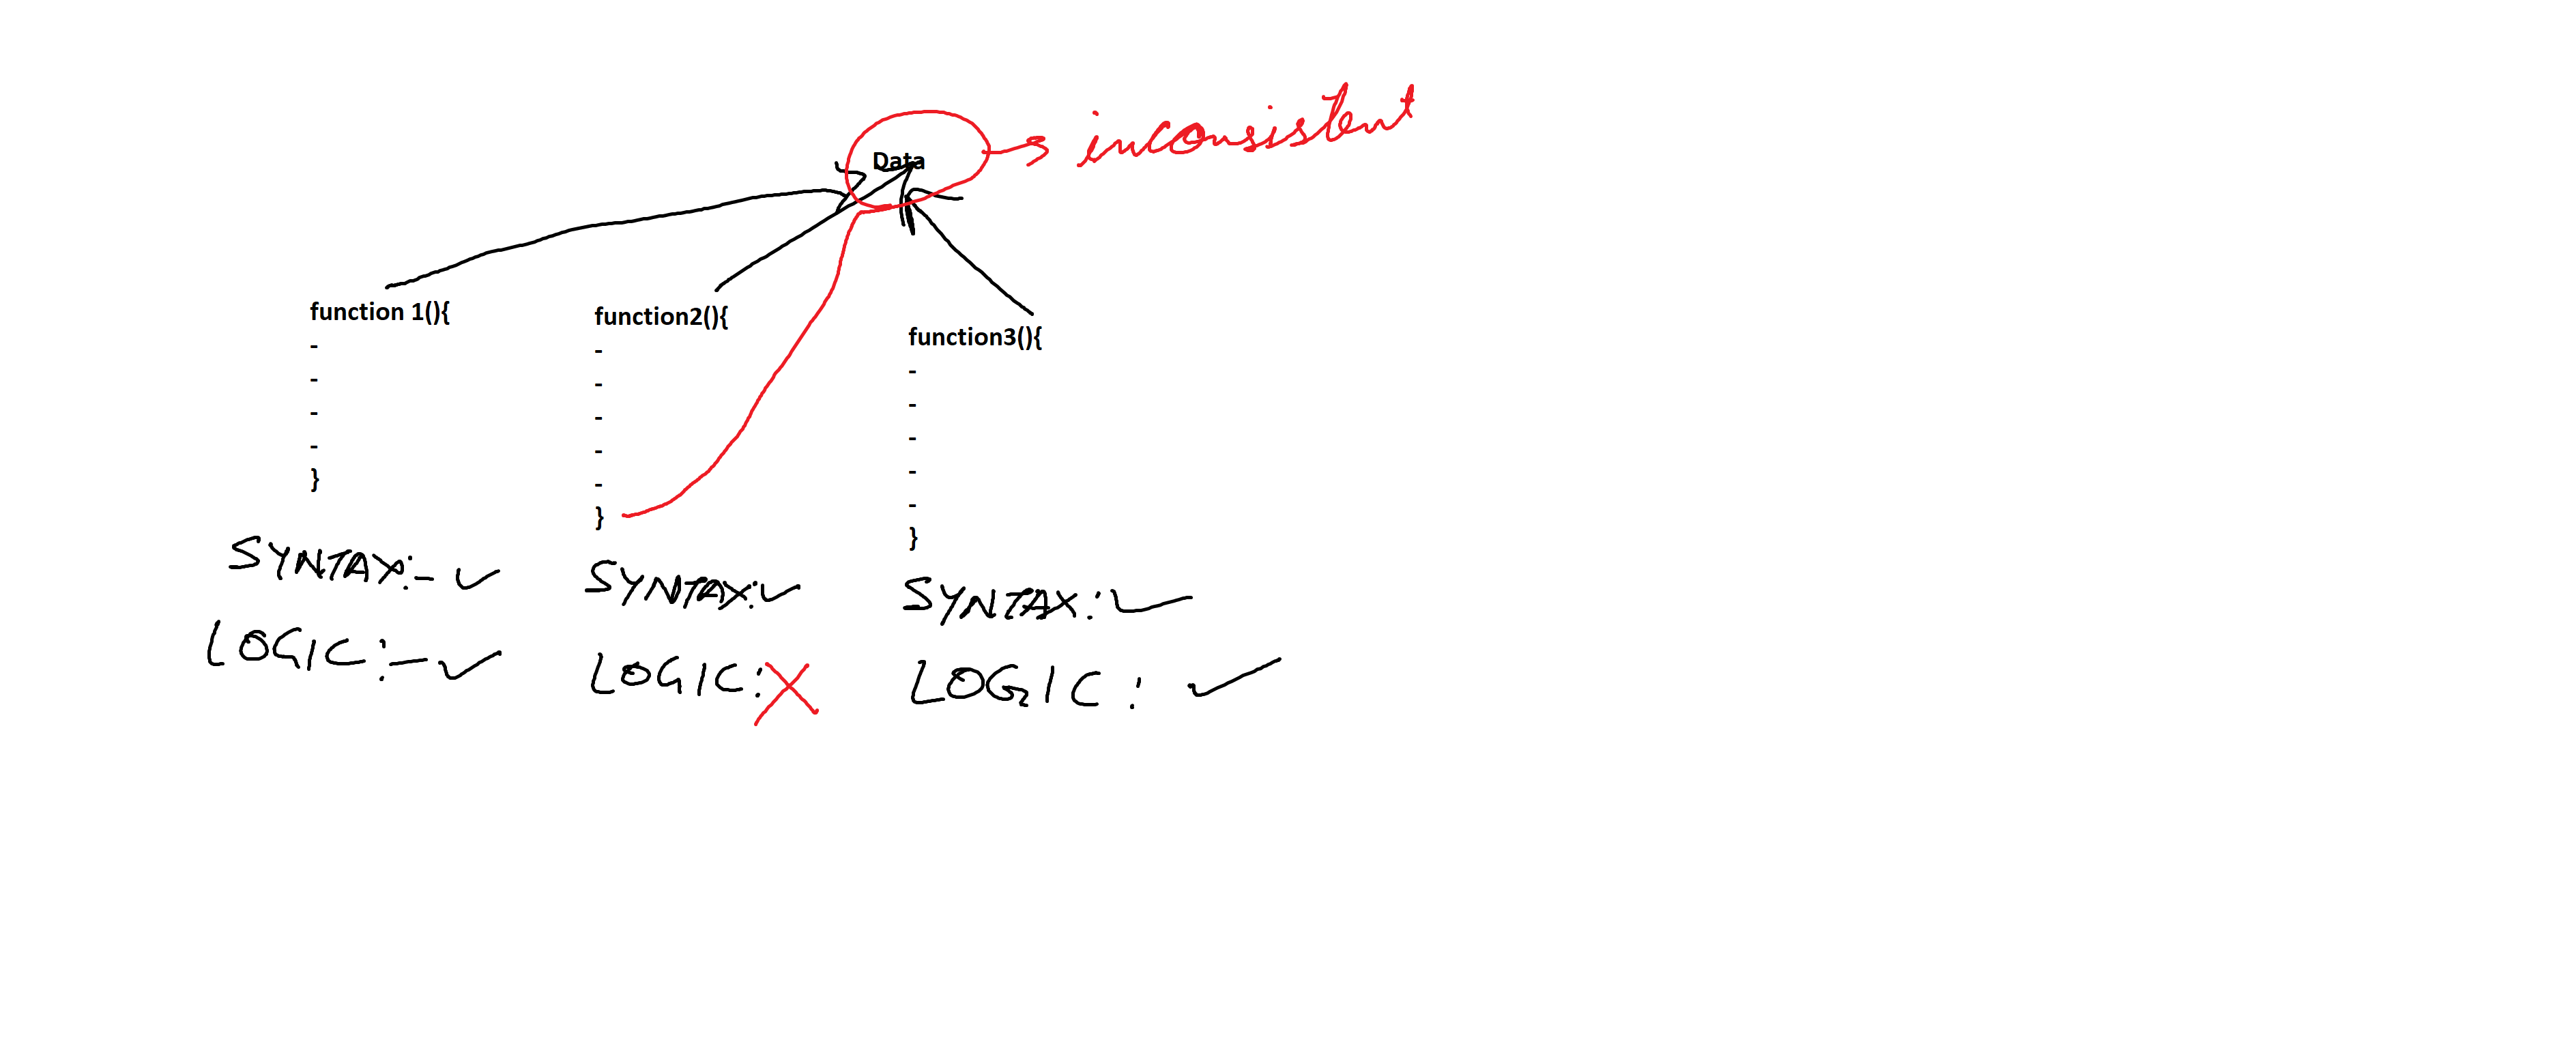 inconsistent
Data
function 1(){
-
-
-
-
}
SYNTAX:- ✓
LOGIC:- ✓
function2(){
-
-
-
-
-
}
SYNTAX:✓
LOGIC:X
function3(){
-
-
-
-
-
}
SYNTAX:✓
LOGIC: ✓